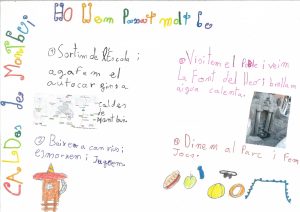 HO Hem Passat molt be
CALDES de MONTBUI
① Sortim de l'Escola i
agafem el
autocar ginsa
caldes
de
montbui
② Baixem a can rius i
esmorzem i Juguem.
③ Visitem el Poble i veim
La Font del lleó i brollam
aigua calenta.
④ Dinem al Parc i Fem
Jocs.